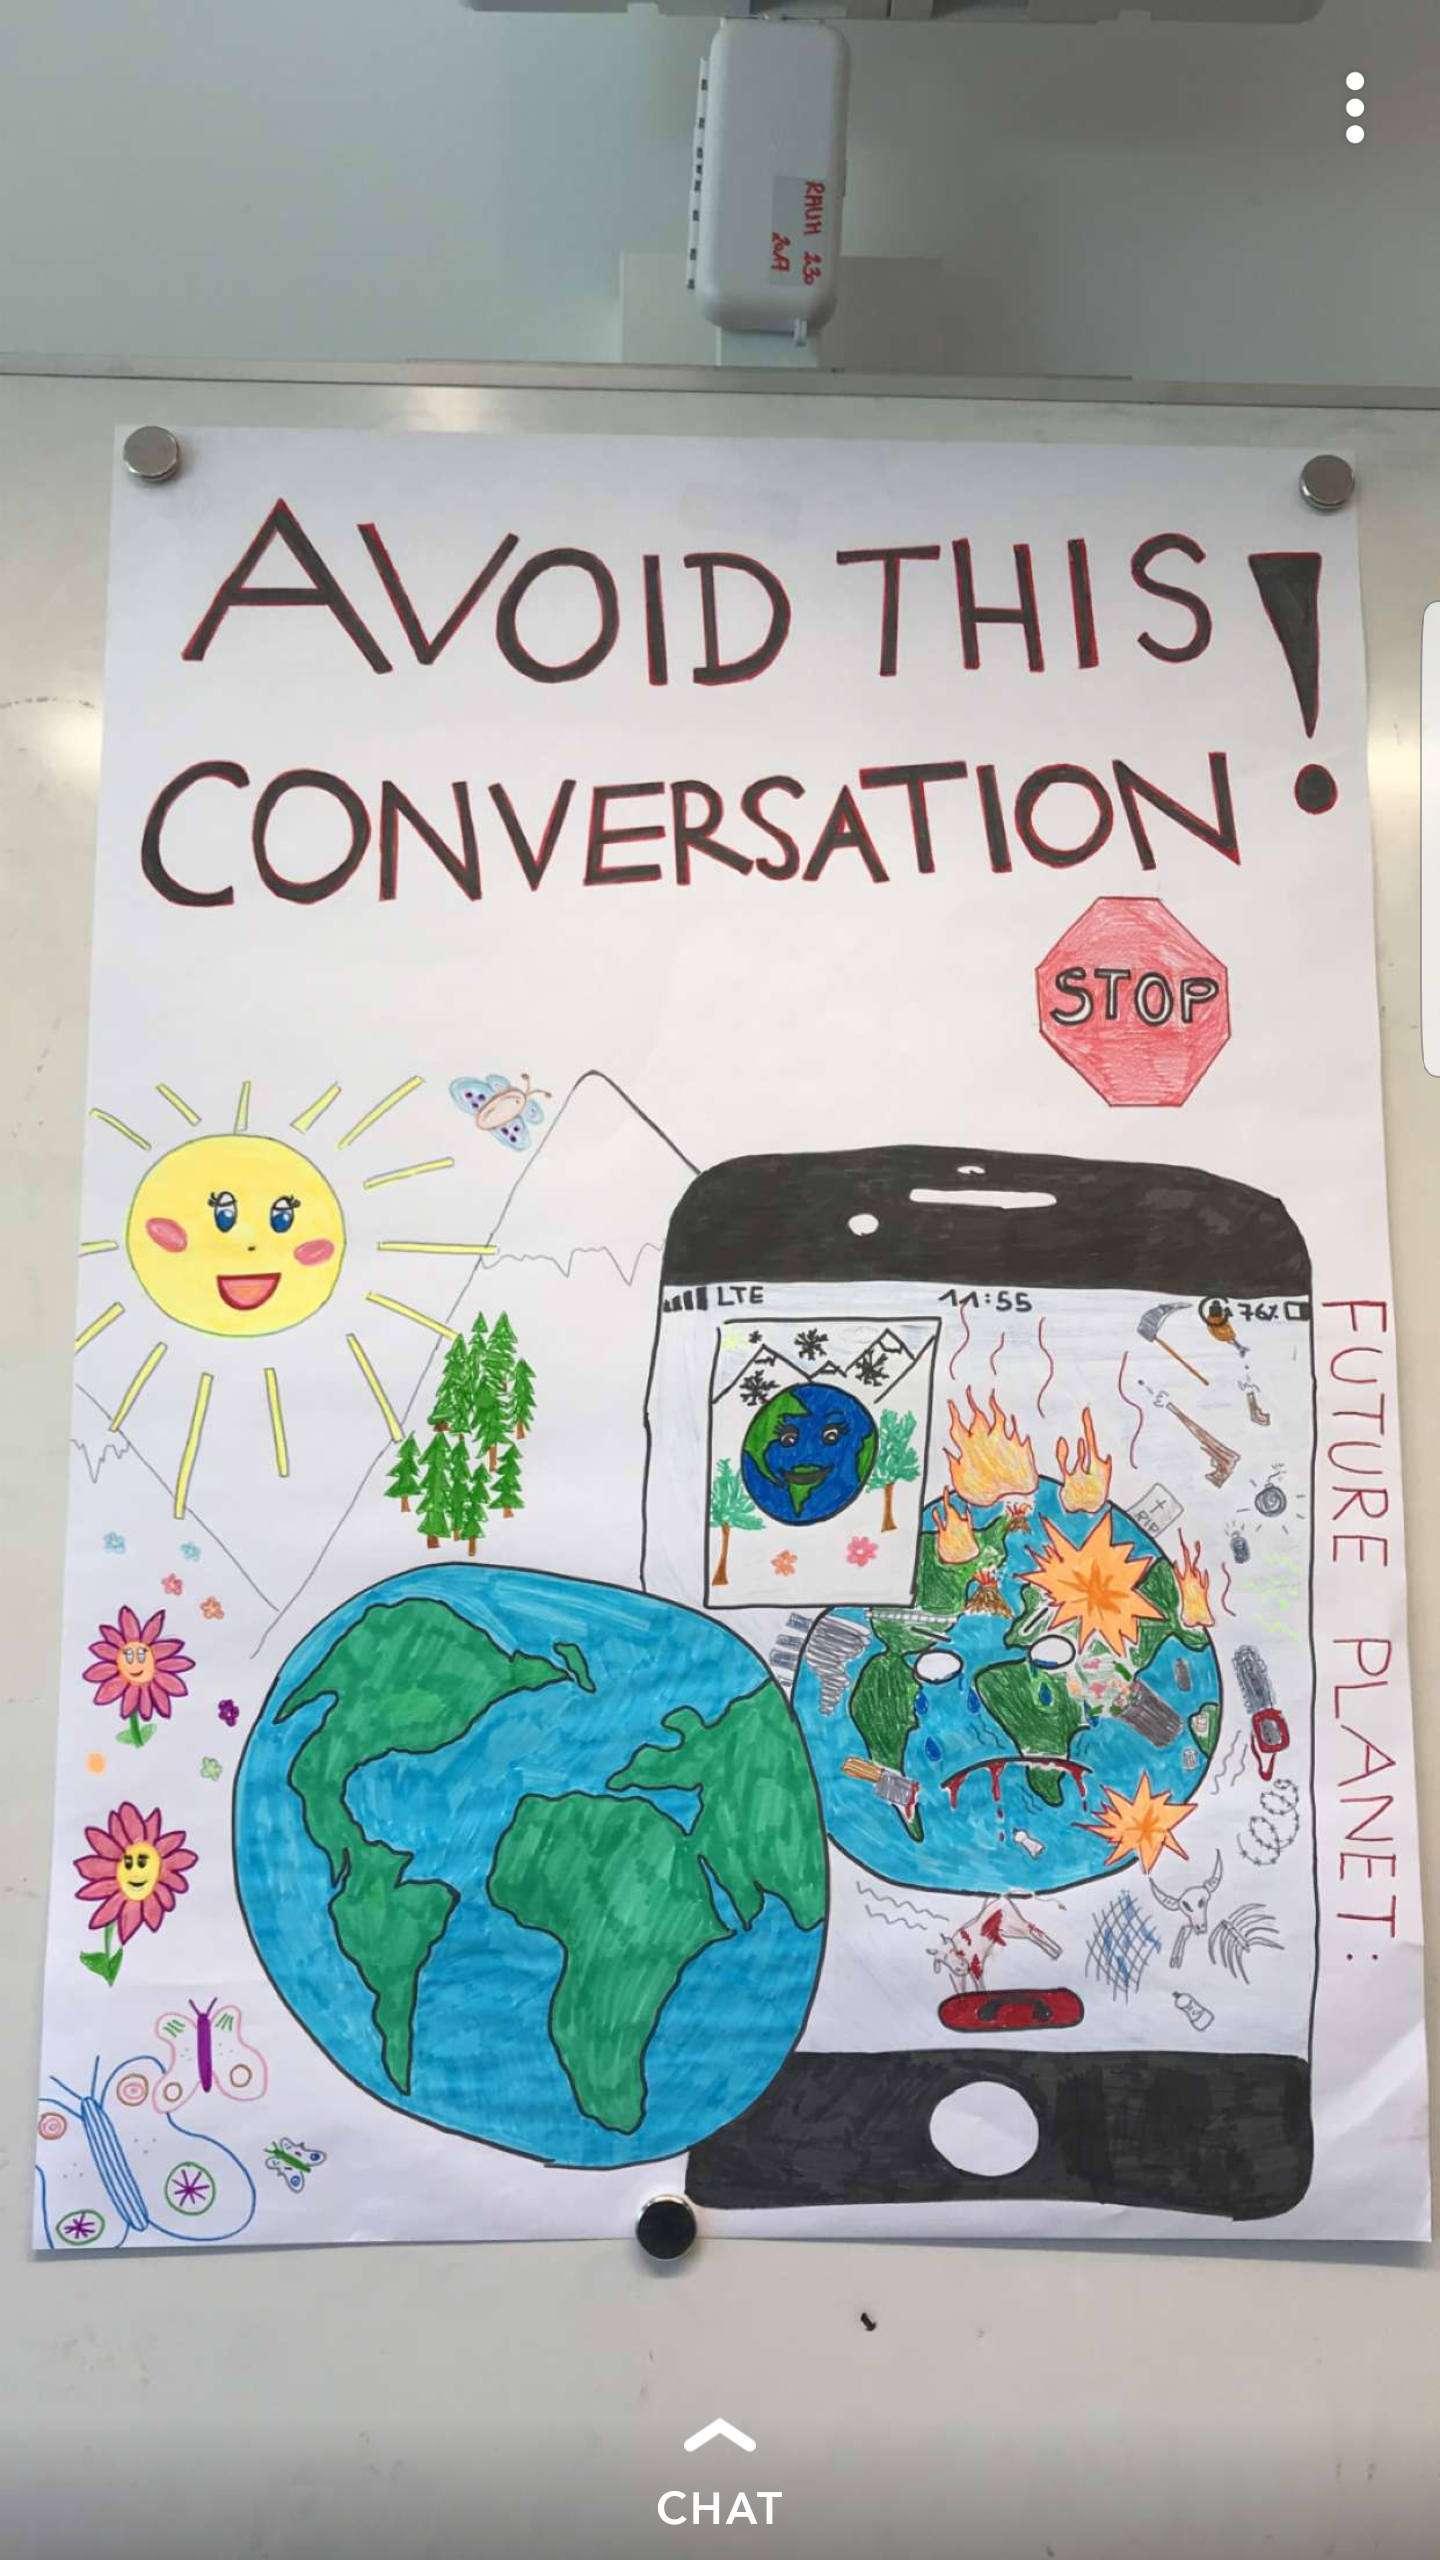 RAUM 230
2017
AVOID THIS!
CONVERSATION
STOP
LTE 11:55 76%
RIP
FUTURE PLANET:
CHAT